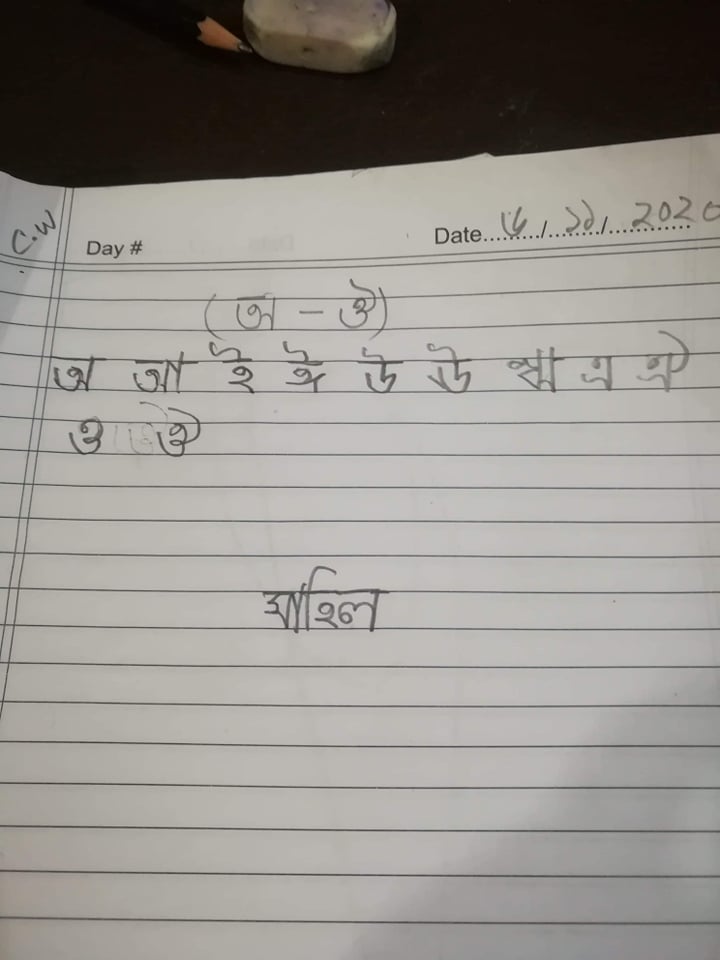 C.W
Day #
Date......../......../............ 2020
(অ - ঔ)
অ আ ই ঈ উ ঊ ঋ এ ঐ
ও ঔ